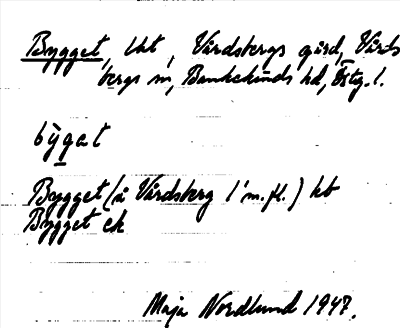 Bygget, lht, Vårdsbergs gård, Vårds
bergs sn, Bankekinds hd, Östg. l.
bỳgat
Bygget (å Vårdsberg 1 m.fl.) kb
Bygget ek
Maja Nordlund 1947.